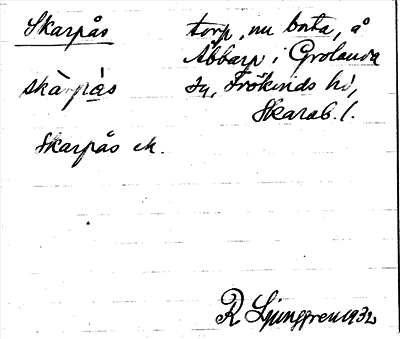 Skarpås torp, nu borta, å
Abbarp i Grolanda
skàrpás sn, Frökinds hd,
Skarab. l.
Skarpås ek.
R Ljunggren 1932